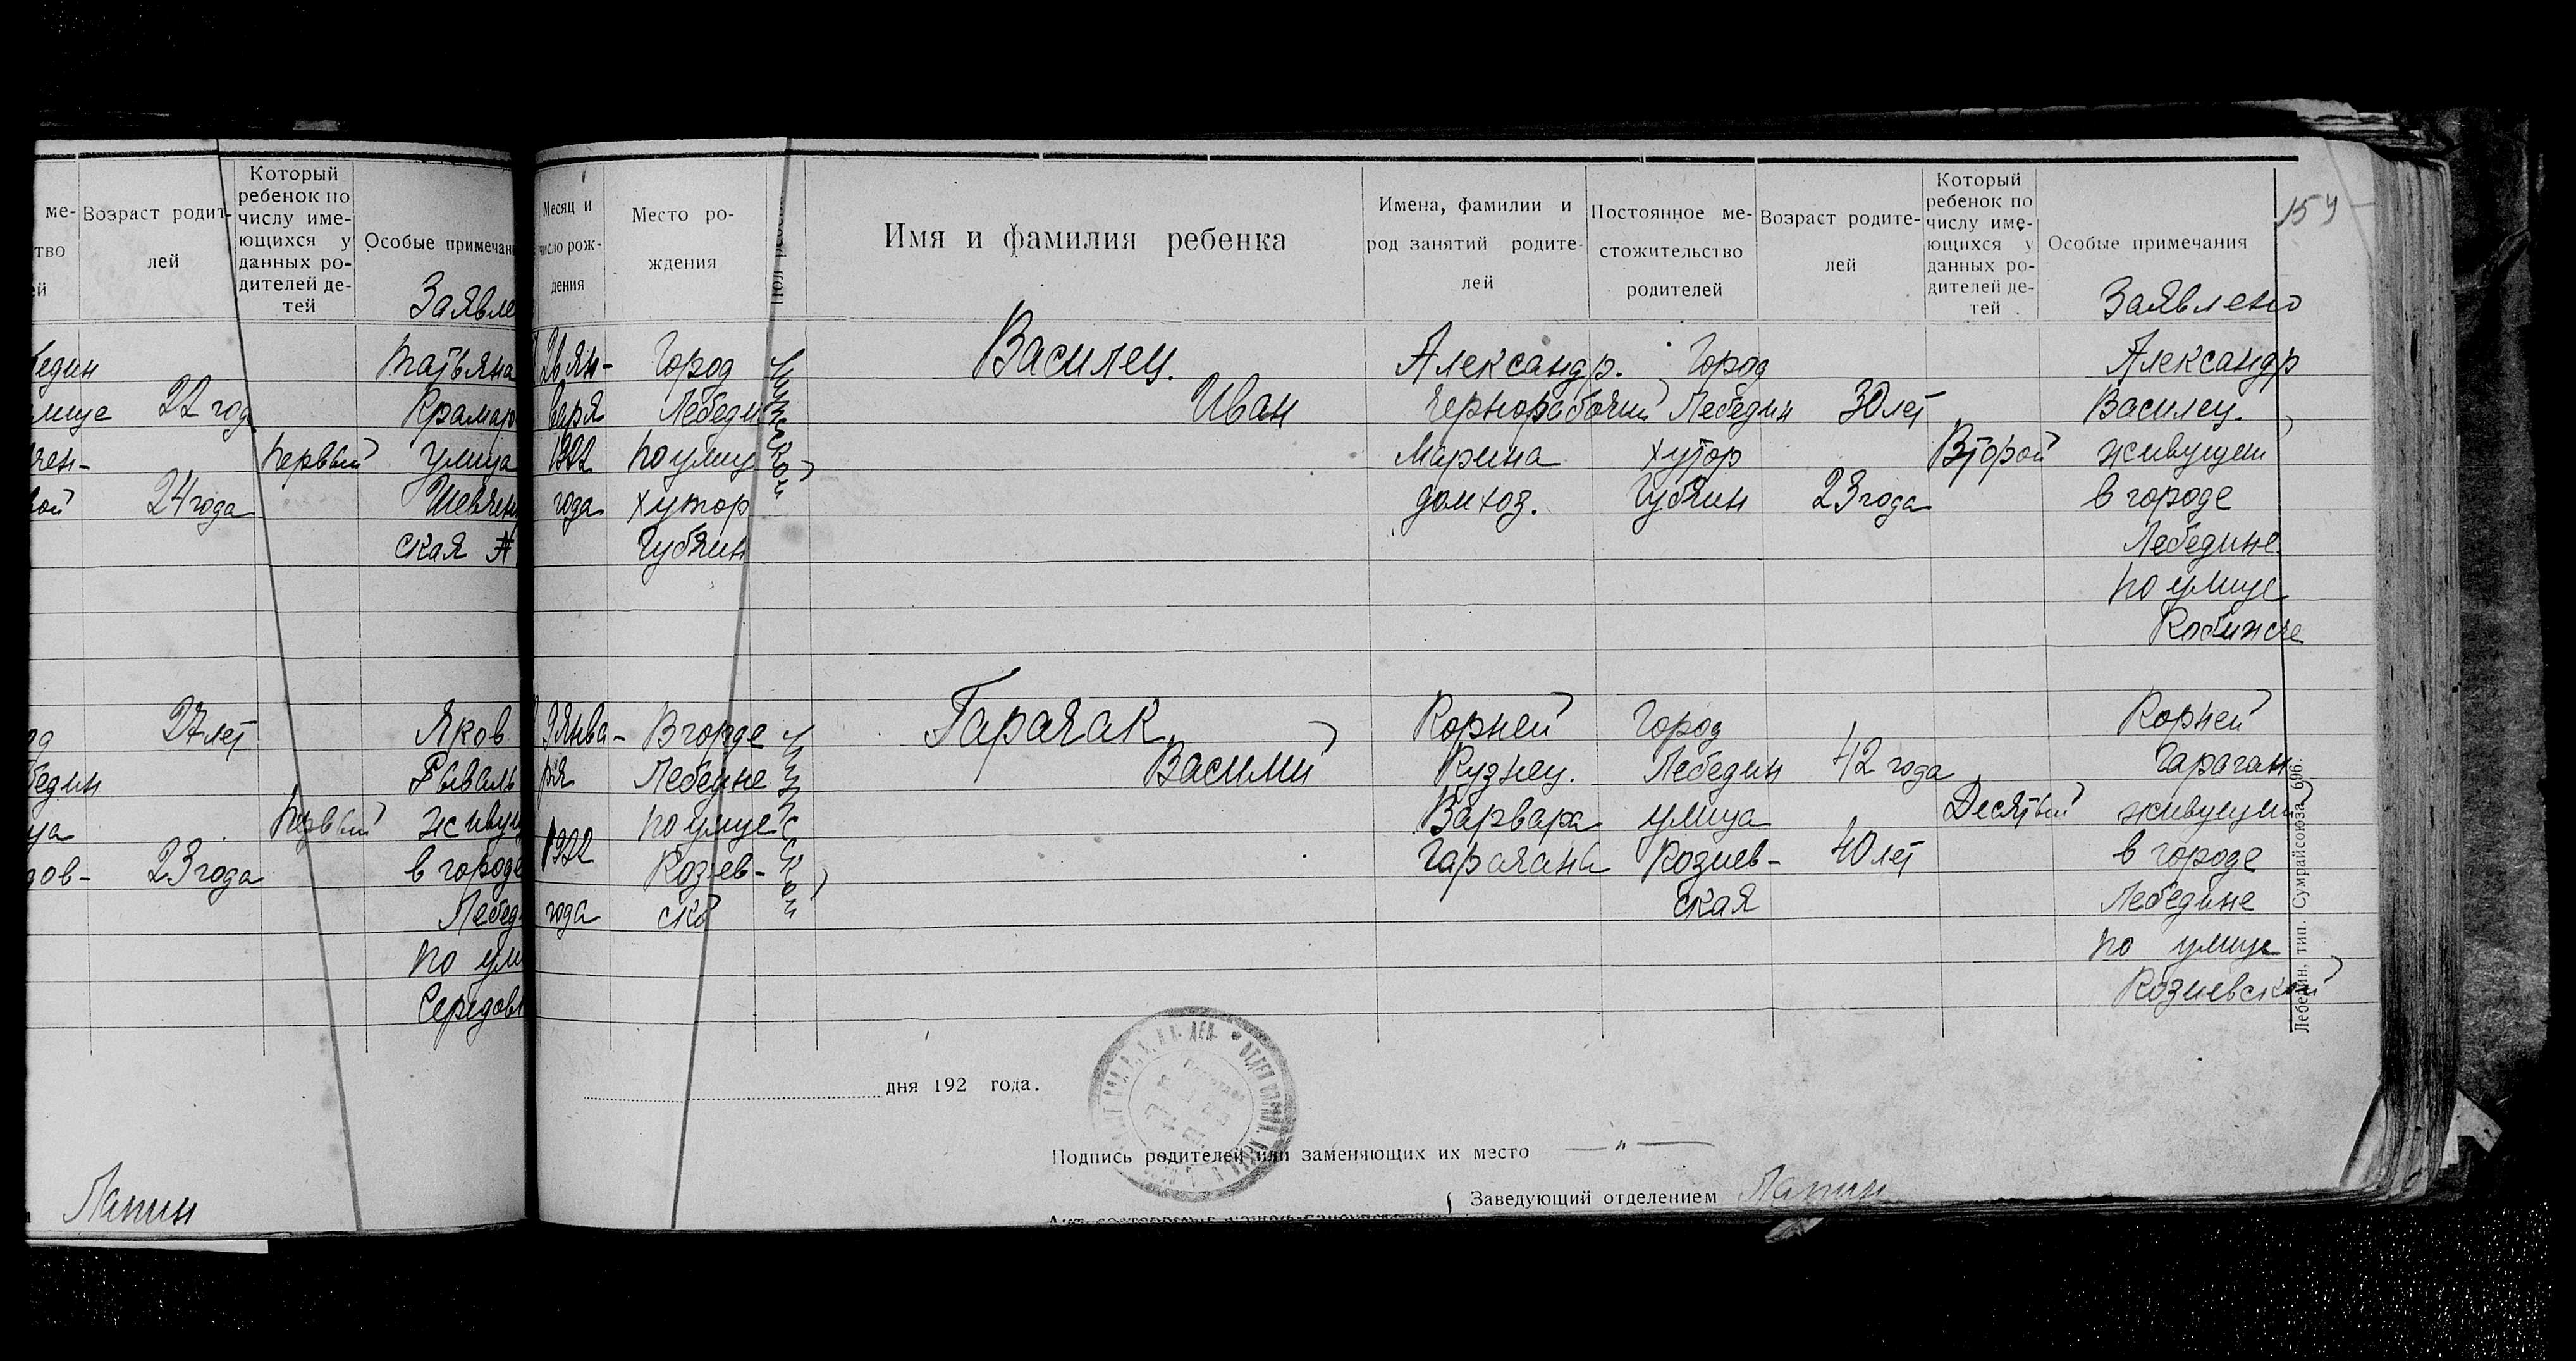 ме-
тво
ей
Возраст родит-
лей
Который
ребенок по
числу име-
ющихся у
данных ро-
дителей де-
тей
Особые примечан
Заявле
бедин
лице 22 год
чен-
вой 24 года
первый
Татьяна
Крамар
улица
Шевчен
ская
27 лет
бедин
ца
дов- 23 года
первый
Яков
живущ
в городе
Лебед
по ули
Середов
Лапин
Месяц и
число рож-
дения
Место ро-
ждения
Имя и фамилия ребенка
Имена, фамилии и
род занятий родите-
лей
Постоянное ме-
стожительство
родителей
Возраст родите-
лей
Который
ребенок по
числу име-
ющихся у
данных ро-
дителей де-
тей
Особые примечания
Заявлено
янв-
варя
1922
года
Город
Лебедин
по улиц
хутор
Губкин
Мужской
Василец.
Иван
Александр.
чернорабочий
Марина
домхоз.
Город
Лебедин
хутор
Губкин
30 лет
23 года
Второй
Александр
Василец.
живущем
в городе
Лебедине
по улице
янва-
ря
1922
года
В горде
Лебедине
по улице
Козиев-
ской
Мужской
Гарачак
Василий
Корней
Кузнец.
Варвара
Город
Лебедин
улица
Козиев-
ская
42 года
40 лет
Десятый
Корней
Гараган
живущий
в городе
Лебедине
по улице
Козиевской
Лебедин. тип. Сумрайсоюза 696.
дня 192 года.
Подпись родителей или заменяющих их место — „ —
Заведующий отделением Лапин